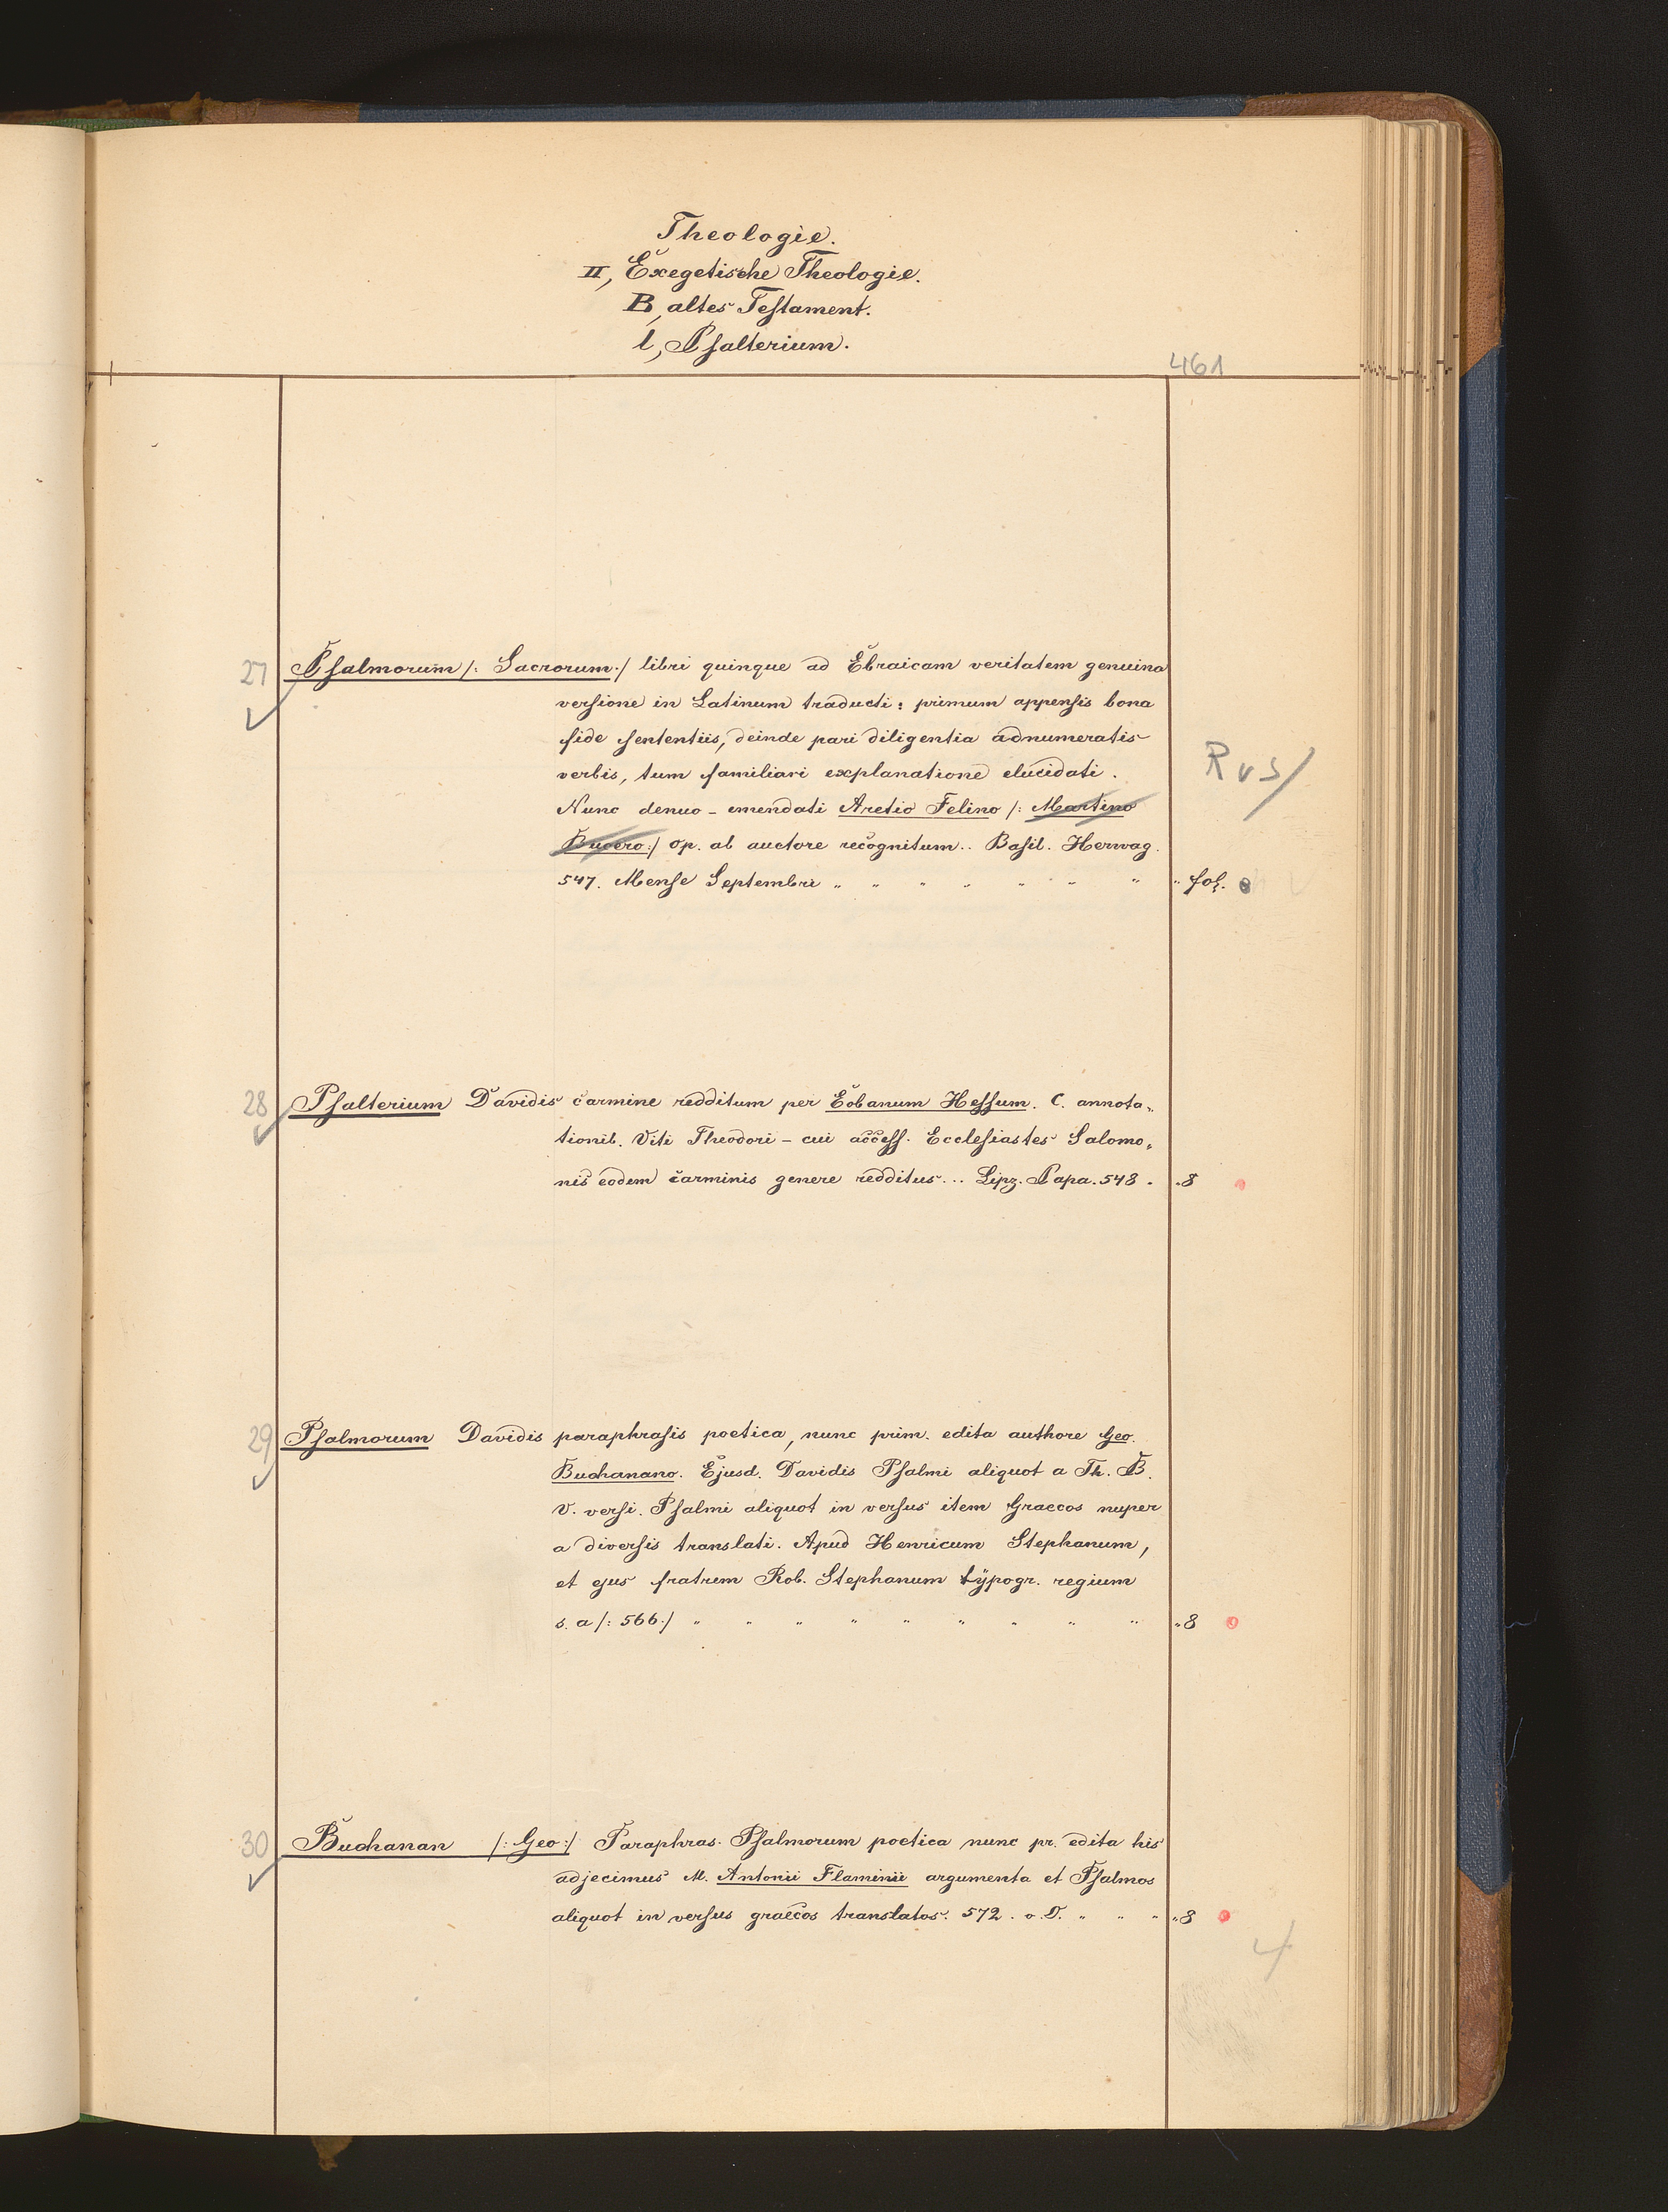 Theologie.
II, Exegetische Theologie.
B, altes Testament.
l, Psalterium.
461
27 Psalmorum /: Sacrorum :/ libri quinque ad Ebraicam veritatem genuina
versione in Latinum traducti: primum appensis bona
fide sententiis, deinde pari diligentia adnumeratis
verbis, tum familiari explanatione elucidati.
Nunc denuo - emendati Aretio Felino /: Martino
Bucero :/ op. ab auctore recognitum.. Basil. Herwag.
547. Mense Septembri " " " " " " " " fol.
R v s/
28 Psalterium Davidis carmine redditum per Eobanum Hessum. C. annota„
tionib. Viti Theodori - cui access. Ecclesiastes Salomo„
nis eodem carminis genere redditus... Lipz. Papa. 548. "8
29 Psalmorum Davidis paraphrasis poetica, nunc prim. edita authore Geo.
Buchanano. Ejusd. Davidis Psalmi aliquot a Th. B.
V. versi. Psalmi aliquot in versus item Graecos nuper
a diversis translati. Apud Henricum Stephanum,
et ejus fratrem Rob. Stephanum typogr. regium
s. a /: 566 :/ " " " " " " " " " "8
30 Buchanan /: Geo :/ Paraphras. Psalmorum poetica nunc pr. edita his
adjecimus M. Antonii Flaminii argumenta et Psalmos
aliquot in versus graecos translatos. 572. o. O. " " " "8
4